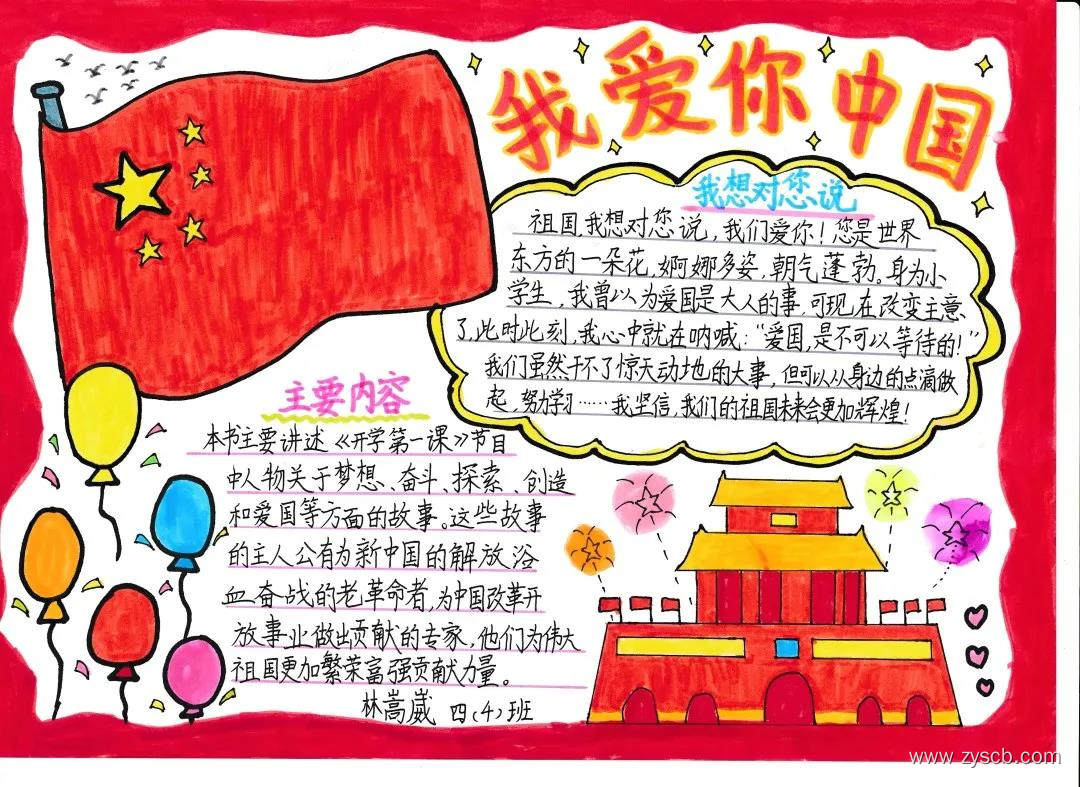 我爱你中国
我想对您说
祖国,我想对您说,我们爱你!您是世界
东方的一朵花,婀娜多姿,朝气蓬勃。身为小
学生,我曾以为爱国是大人的事,可现在改变主意
了,此时此刻,我心中就在呐喊:“爱国,是不可以等待的!”
我们虽然干不了惊天动地的大事,但可以从身边的点滴做
起,努力学习……我坚信,我们的祖国未来会更加辉煌!
主要内容
本书主要讲述《开学第一课》节目
中人物关于梦想、奋斗、探索、创造
和爱国等方面的故事。这些故事
的主人公有为新中国的解放浴
血奋战的老革命者,为中国改革开
放事业做出贡献的专家,他们为伟大
祖国更加繁荣富强贡献力量。
林嵩崴 四(4)班
www.zyscb.com